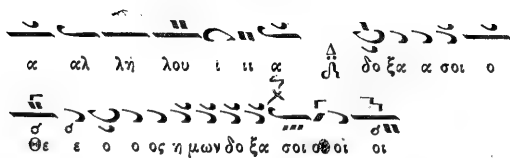 α αλ λή λου ι ιι α Δ δο ξα α σοι ο
Θε ε ο ο ος η μων δο ξα σοι οι οι